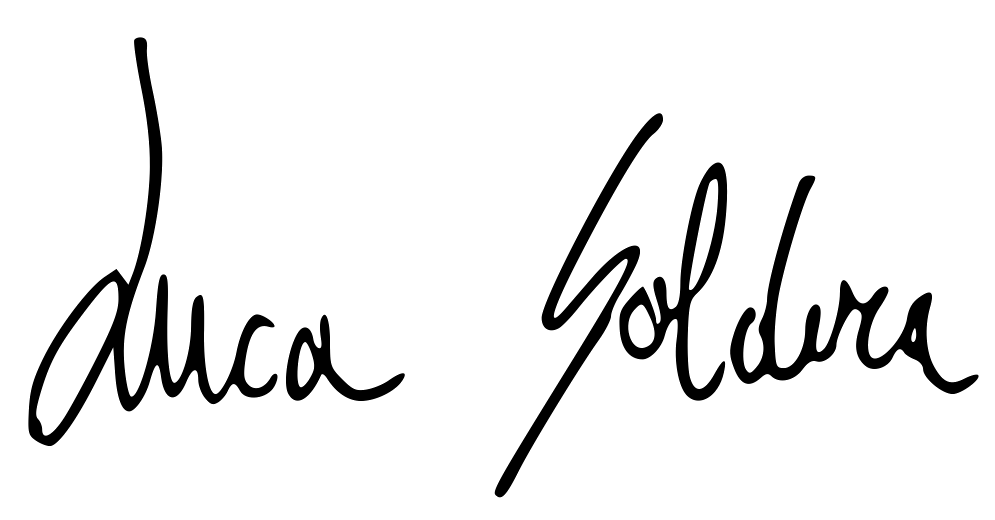 Luca Soldera